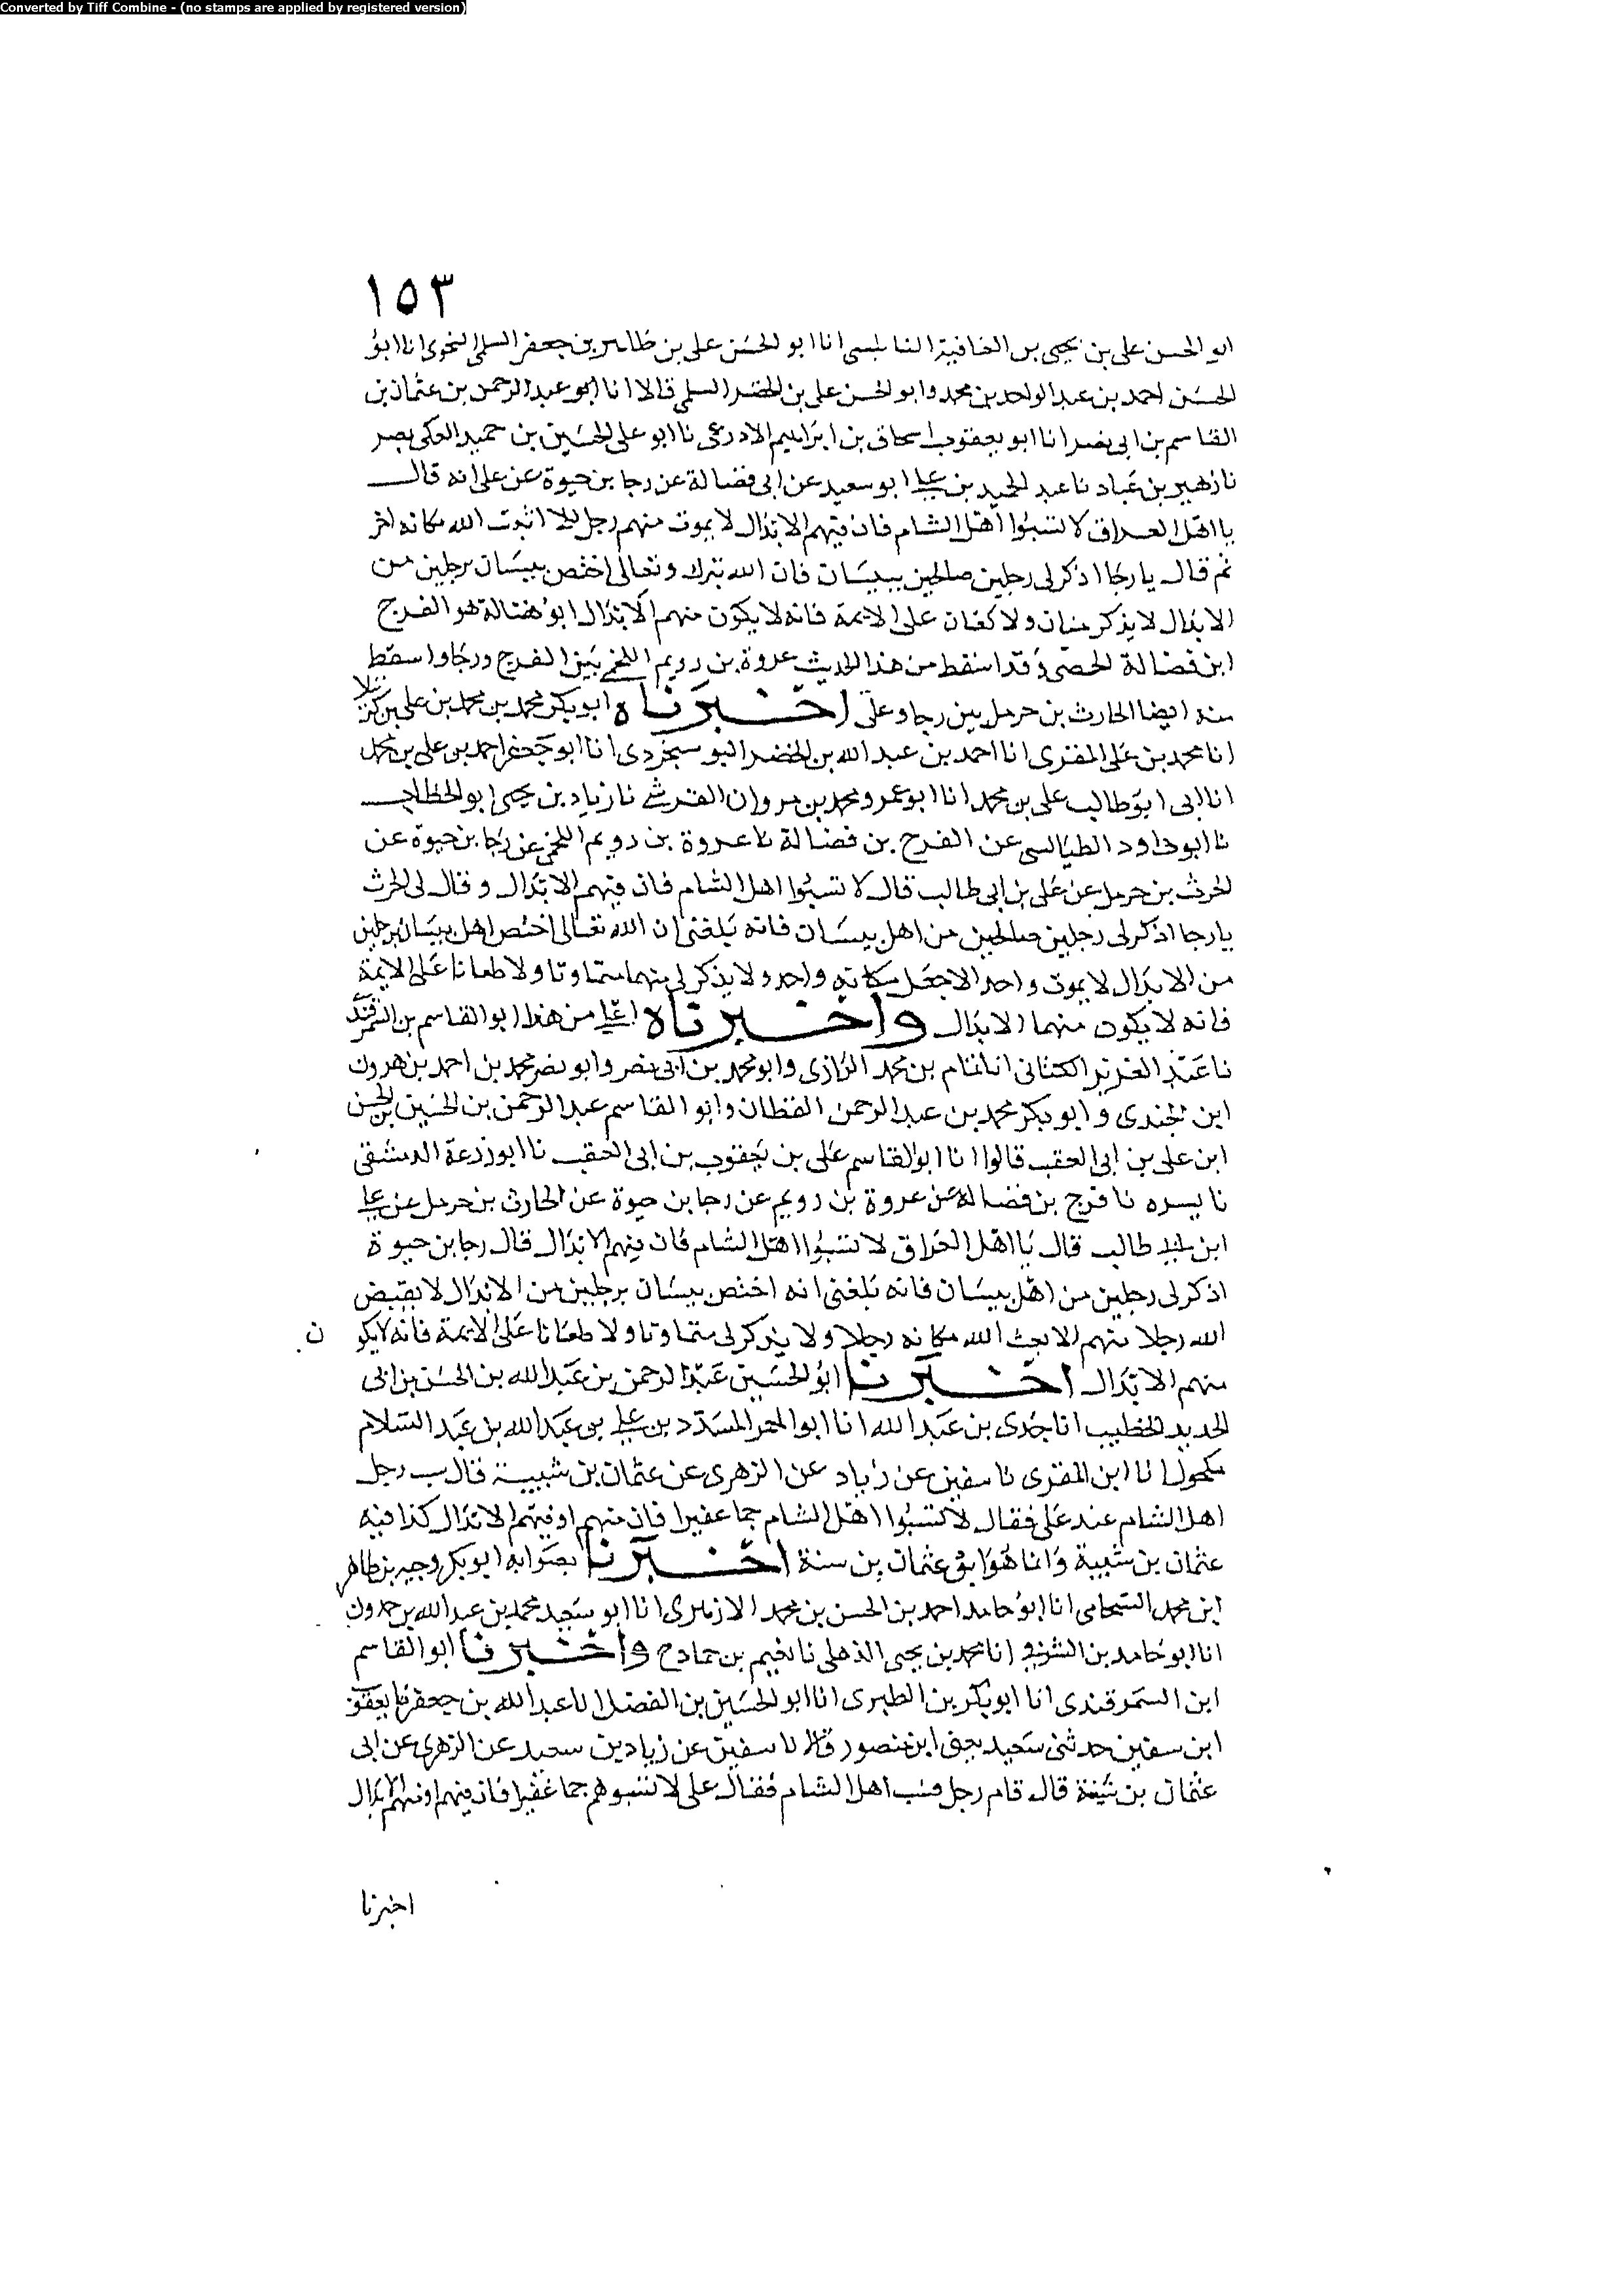 Converted by Tiff Combine - (no stamps are applied by registered version)
١٥٣
ابو الحسن على بن يحيى بن العافية النابلسى انا ابو الحسن على بن طاهر بن جعفر السلمى النحوى انا ابو
الحسن احمد بن عبد الواحد بن محمد وابو الحسن على بن الخضر السلمى قالا انا ابو عبد الرحمن بن عثمان بن
القاسم بن ابى نصر انا ابو يعقوب اسحاق بن ابراهيم الاذرعى نا ابو على الحسين بن حميد العكى بمصر
نا زهير بن عباد نا عبد الحميد بن على ابو سعيد عن ابى فضالة عن رجا بن حيوة عن على انه قال
يا اهل العراق لا تسبوا اهل الشام فان فيهم الابدال لا يموت منهم رجل الا اثبت الله مكانه اخر
ثم قال يا رجا اذكر لى رجلين صالحين ببيسان فان الله تبرك وتعالى اختص بيسان برجلين من
الابدال لا يذكر ولا على الايمة فانه لا يكون منهم الابدال ابو فضالة هو الفرج
ابن فضالة الحمصى وقد اسقط من هذا الحديث عروة بن رويم اللخمى بين الفرج ورجا واسقط
منه ايضا الحارث بن حرمل بين رجا وعلى اخبرناه ابو بكر محمد بن محمد بن على بن كرتيلا
انا محمد بن على المقرى انا احمد بن عبد الله بن الخضر السوسنجردى انا ابو جعفر احمد بن على بن محمد
انا ابى ابو طالب على بن محمد انا ابو عمرو محمد بن مروان القرشى نا زياد بن يحيى ابو الخطاب
نا ابو داود الطيالسى عن الفرج بن فضالة نا عروة بن رويم اللخمى عن رجا بن حيوة عن
الحرث بن حرمل عن على بن ابى طالب قال لا تسبوا اهل الشام فان فيهم الابدال وقال لى الحرث
يا رجا اذكر لى رجلين صالحين من اهل بيسان فانه بلغنى ان الله تعالى اختص اهل بيسان برجلين
من الابدال لا يموت واحد الا جعل مكانه واحد ولا يذكر لى منهما متماوتا ولا طعانا على الايمة
فانه لا يكون منهما الابدال واخبرناه اعلى من هذا ابو القاسم بن السمرقندى
نا عبد العزيز الكتانى انا تمام بن محمد الرازى وابو محمد بن ابى نصر وابو نصر محمد بن احمد بن هرون
ابن الجندى وابو بكر محمد بن عبد الرحمن القطان وابو القاسم عبد الرحمن بن الحسين بن الحسن
ابن على بن ابى العقب قالوا انا ابو القاسم على بن يعقوب بن ابى العقب نا ابو زرعة الدمشقى
نا يسره نا فرج بن فضالة عن عروة بن رويم عن رجا بن حيوة عن الحارث بن حرمل عن على
ابن ابى طالب قال يا اهل العراق لا تسبوا اهل الشام فان فيهم الابدال قال رجا بن حيوة
اذكر لى رجلين من اهل بيسان فانه بلغنى انه اختص بيسان برجلين من الابدال لا يقبض
الله رجلا منهم الا بعث الله مكانه رجلا ولا يذكر لى متماوتا ولا طعانا على الايمة فانه لا يكون
منهم الابدال اخبرنا ابو الحسين عبد الرحمن بن عبد الله بن الحسن بن ابى
الحديد الخطيب انا جدى بن عبد الله انا ابو المعمر المسدد بن على بن عبد الله بن عبد السلام
مكحول انا ابن المقرى نا سفين عن زياد عن الزهرى عن عثمان بن شبيبة قال سب رجل
اهل الشام عند على فقال لا تسبوا اهل الشام جما غفيرا فان منهم او فيهم الابدال كذا فيه
عثمان بن شبيبة وانما هو ابو عثمان بن سنة اخبرنا بصوابه ابو بكر وجيه بن طاهر
ابن محمد الشحامى انا ابو حامد احمد بن الحسن بن محمد الازهرى انا ابو سعيد محمد بن عبد الله بن حمدون
انا ابو حامد بن الشرقى انا محمد بن يحيى الذهلى نا نعيم بن حماد ح واخبرنا ابو القاسم
ابن السمرقندى انا ابو بكر بن الطبرى انا ابو الحسين بن الفضل انا عبد الله بن جعفر نا يعقوب
ابن سفين حدثنى سعيد يعنى ابن منصور قالا نا سفين عن زياد بن سعيد عن الزهرى عن ابى
عثمان بن سنة قال قام رجل فسب اهل الشام فقال على لا تسبوهم جما غفيرا فان فيهم او منهم الابدال
اخبرنا